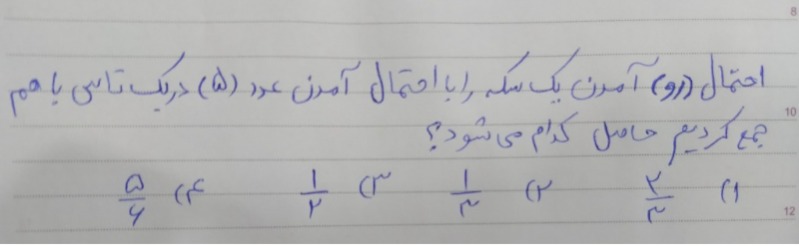 احتمال (رو) آمدن یک سکه را با احتمال آمدن عدد (۵) در یک تاس با هم
جمع کردیم حاصل کدام می شود؟
۱) ۲/۳ ۲) ۱/۳ ۳) ۱/۲ ۴) ۵/۶
8
10
12